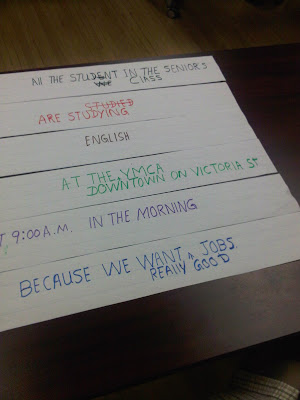 All THE STUDENT IN THE SENIORS
CLASS
STUDIED
ARE STUDYING
ENGLISH
AT THE YMCA
DOWNTOWN ON VICTORIA ST
9:00 A.M. IN THE MORNING
BECAUSE WE WANT ^ JOBS
REAllY GOOD